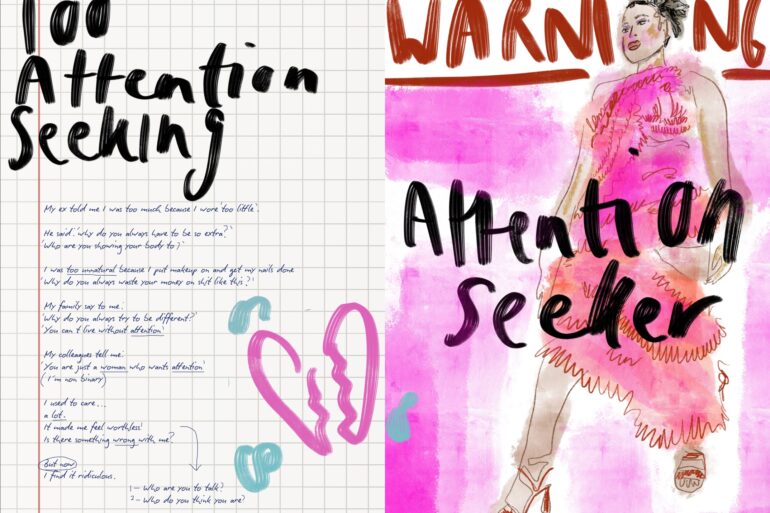 Too
Attention
Seeking
My ex told me I was too much, because I wore 'too little'.
He said 'why do you always have to be so extra?'
'Who are you showing your body to?'
I was too unnatural because I put makeup on and get my nails done
'Why do you always waste your money on shit like this?'
My family say to me:
'Why do you always try to be different?'
'You can't live without attention'
My colleagues tell me:
'You are just a woman who wants attention'
(I'm non binary)
I used to care...
a lot.
It made me feel worthless!
Is there something wrong with me?
But now
I find it ridiculous.
1 - Who are you to talk?
2 - Who do you think you are?
WARNING
Attention
Seeker